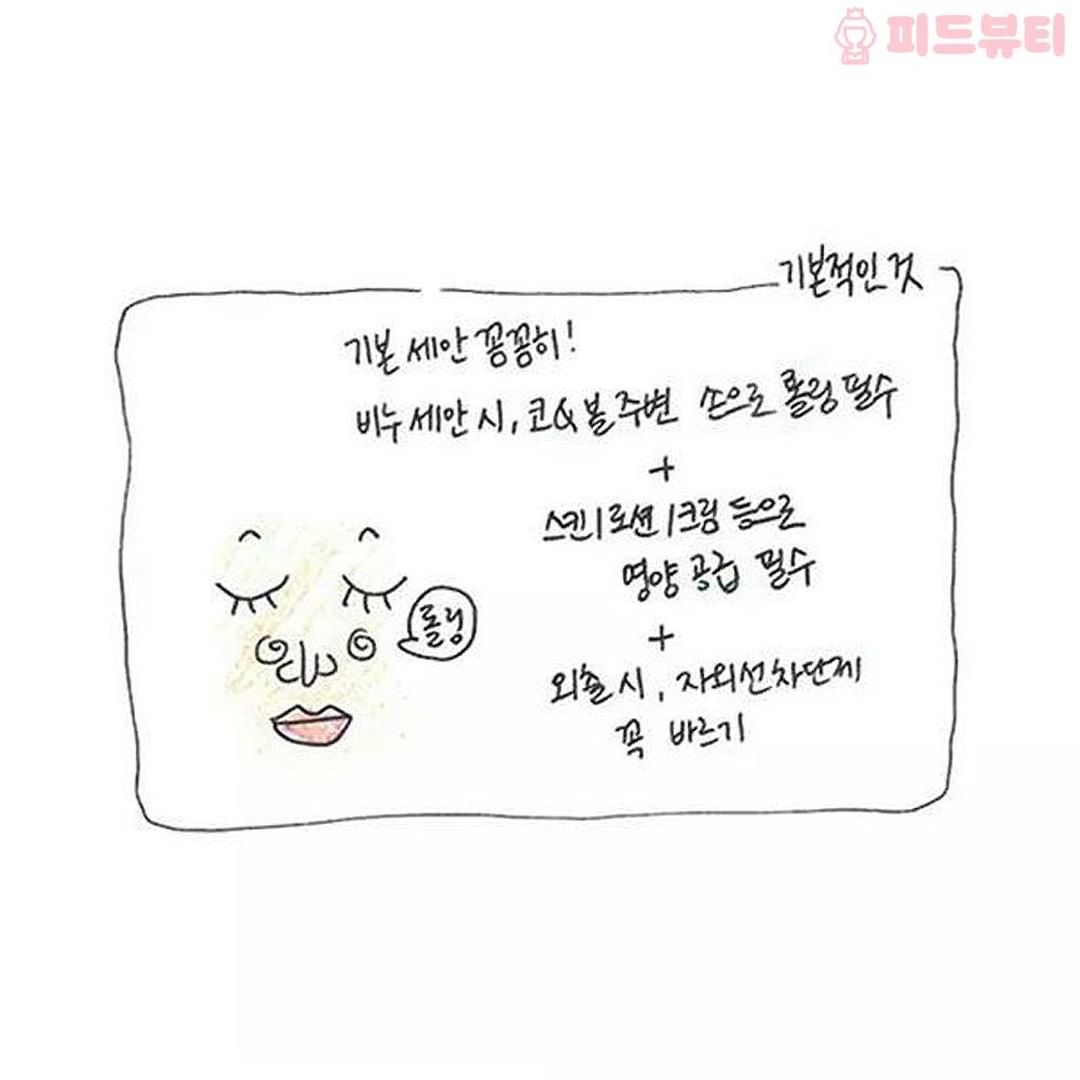 피드뷰티
기본적인 것
기본 세안 꼼꼼히!
비누 세안 시, 코& 볼 주변 손으로 롤링 필수
+
스킨/로션/크림 등으로
영양 공급 필수
롤링
+
외출 시, 자외선차단제
꼭 바르기